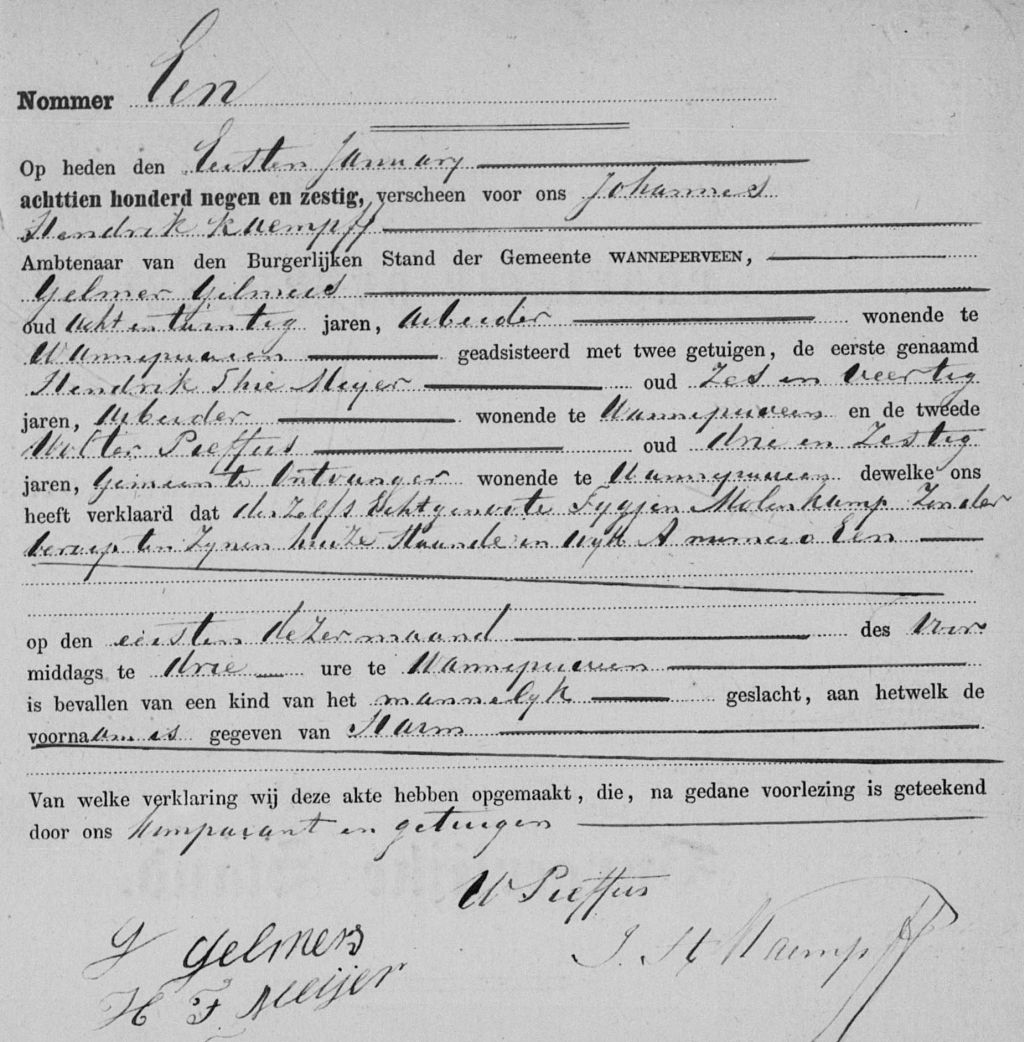 Nommer Een
Op heden den Eersten January
achttien honderd negen en zestig, verscheen voor ons Johannes
Hendrik Kaempff
Ambtenaar van den Burgerlijken Stand der Gemeente WANNEPERVEEN,
Gelmer Gelmers
oud acht en twintig jaren, Arbeider wonende te
Wanneperveen geadsisteerd met twee getuigen, de eerste genaamd
Hendrik Meyer oud Zes en Veertig
jaren, Arbeider wonende te Wanneperveen en de tweede
Wolter Pieffers oud drie en Zestig
jaren, Gemeente Ontvanger wonende te Wanneperveen dewelke ons
heeft verklaard dat deszelfs Echtgenoote Fygjen Molenkamp Zonder
beroep ten Zynen huize Staande in Wyk A numero Een
op den eersten dezer maand des Voor
middags te drie ure te Wanneperveen
is bevallen van een kind van het mannelyk geslacht, aan hetwelk de
voornaam is gegeven van Harm
Van welke verklaring wij deze akte hebben opgemaakt, die, na gedane voorlezing is geteekend
door ons Komparant en getuigen
W Pieffers
G Gelmers
J. H Kaempff
H F Meijer